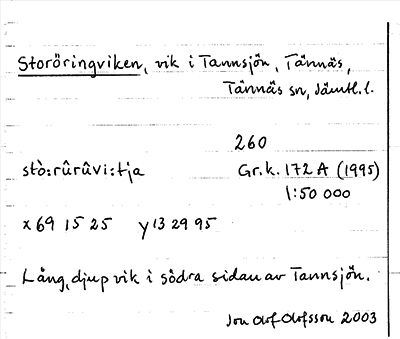 Storöringviken, vik i Tannsjön, Tännäs,
Tännäs sn, Jämtl.l.
260
stò:rûrûvi:tja Gr.k. 172 A (1995)
1:50 000
x 69 15 25 y 13 29 95
Lång, djup vik i södra sidan av Tannsjön.
Jon Olof Olofsson 2003